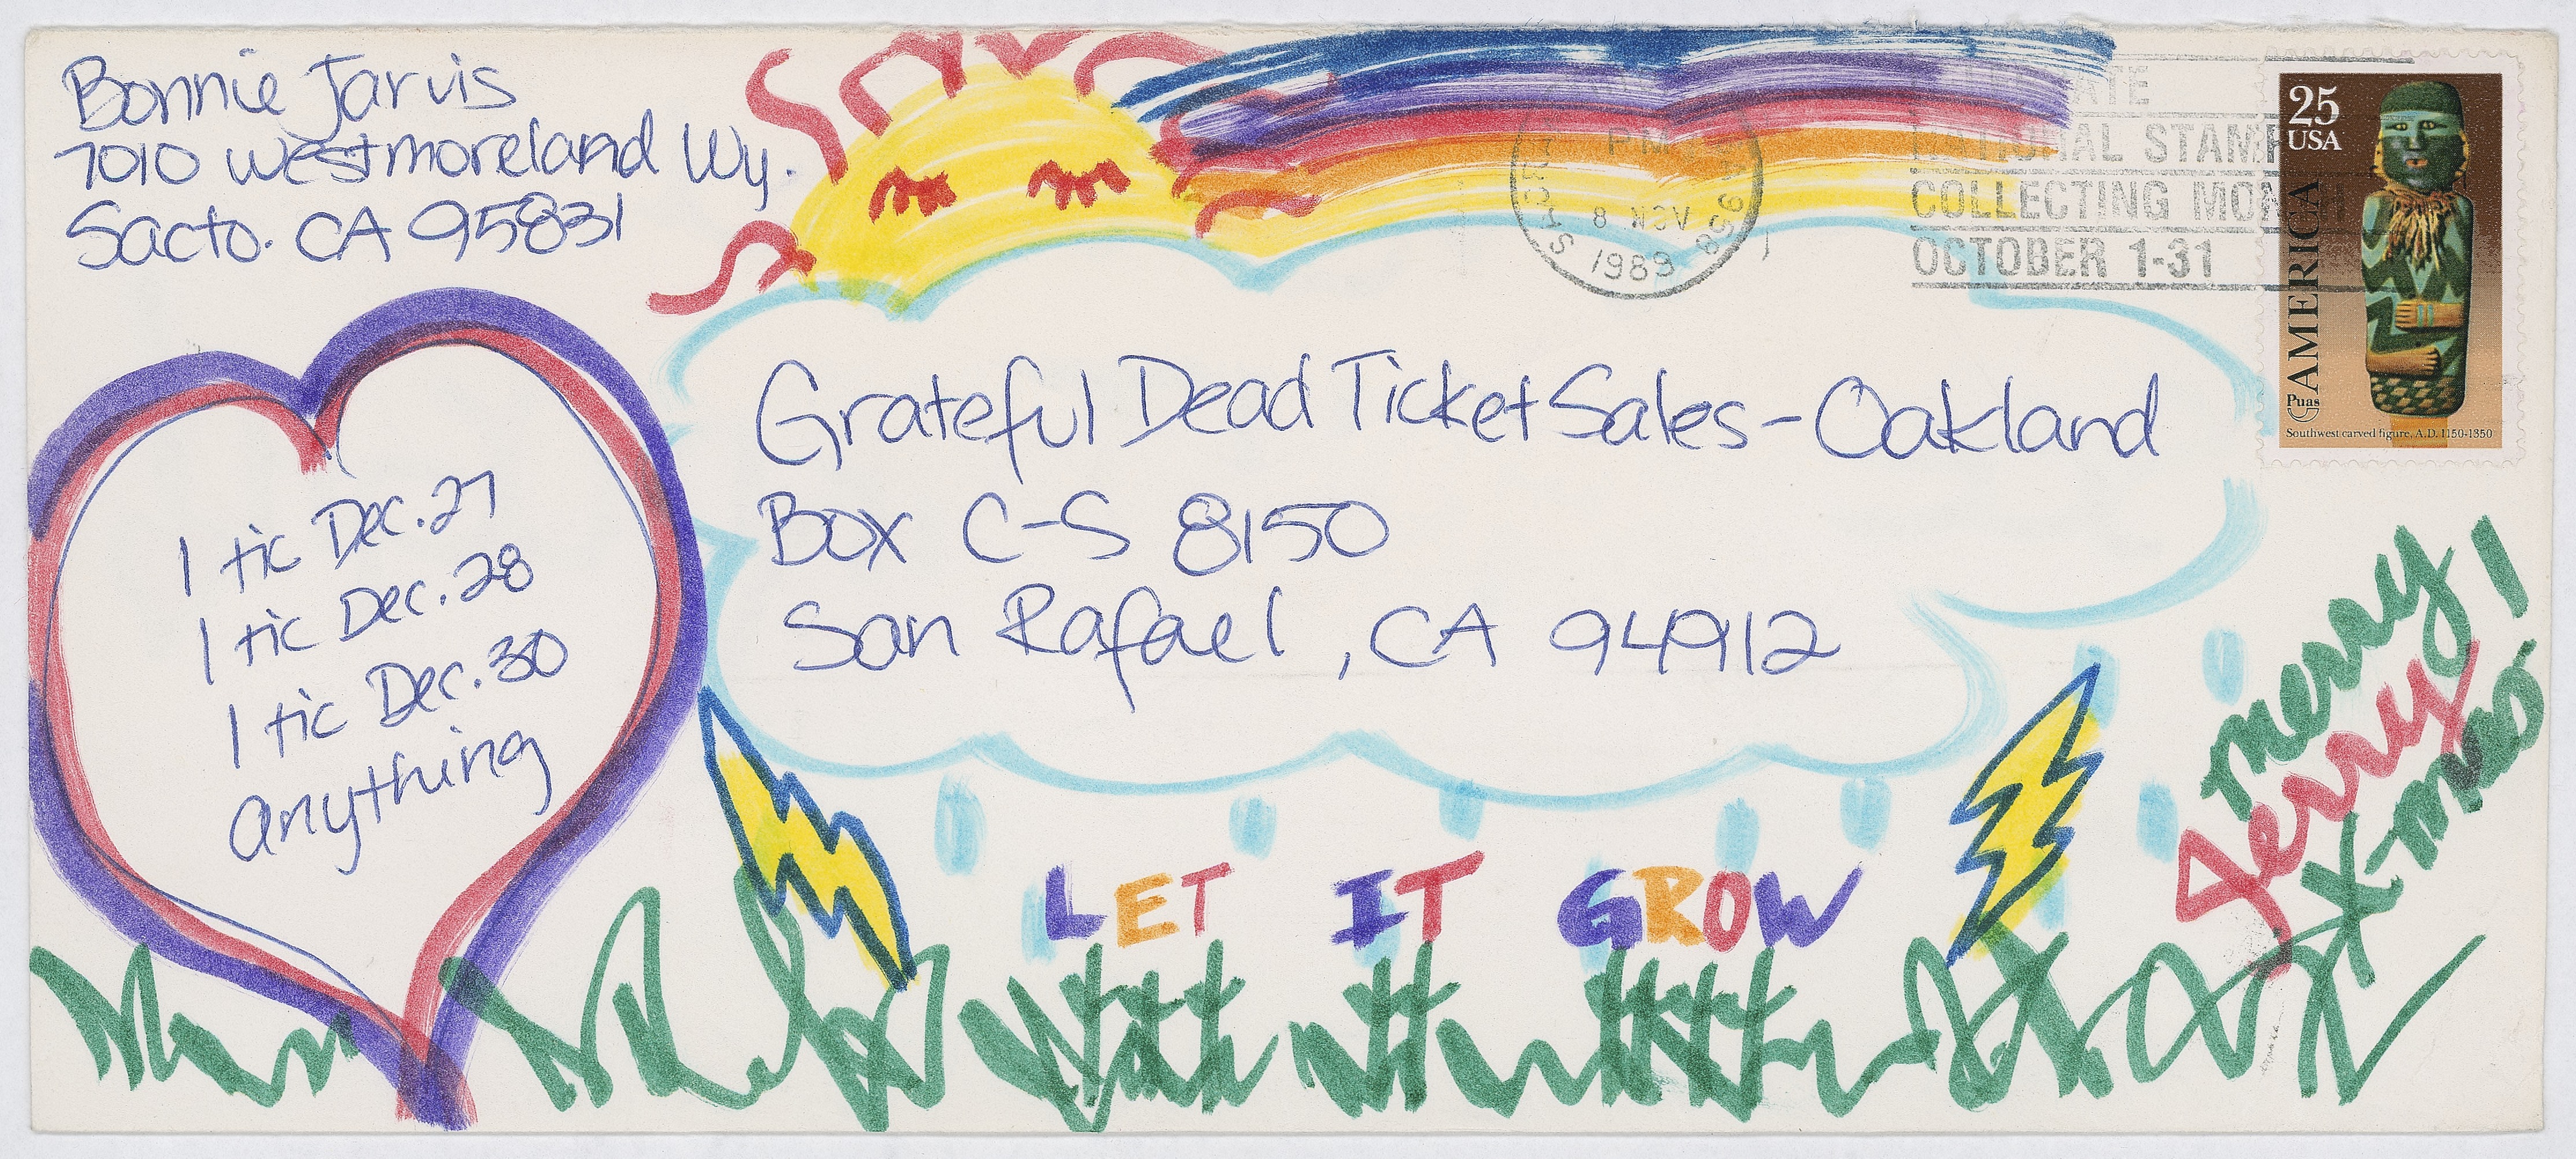 Bonnie Jarvis
7010 Westmoreland Wy.
Sacto. CA 95831
PM
8 NOV
1989
958
NATIONAL STAMP
COLLECTING MONTH
OCTOBER 1-31
25
USA
AMERICA
Puas
Southwest carved figure, A.D. 1150-1350
Grateful Dead Ticket Sales - Oakland
Box C-S 8150
San Rafael, CA 94912
1 tic Dec. 27
1 tic Dec. 28
1 tic Dec. 30
anything
merry!
Jerry
X-mas
LET IT GROW